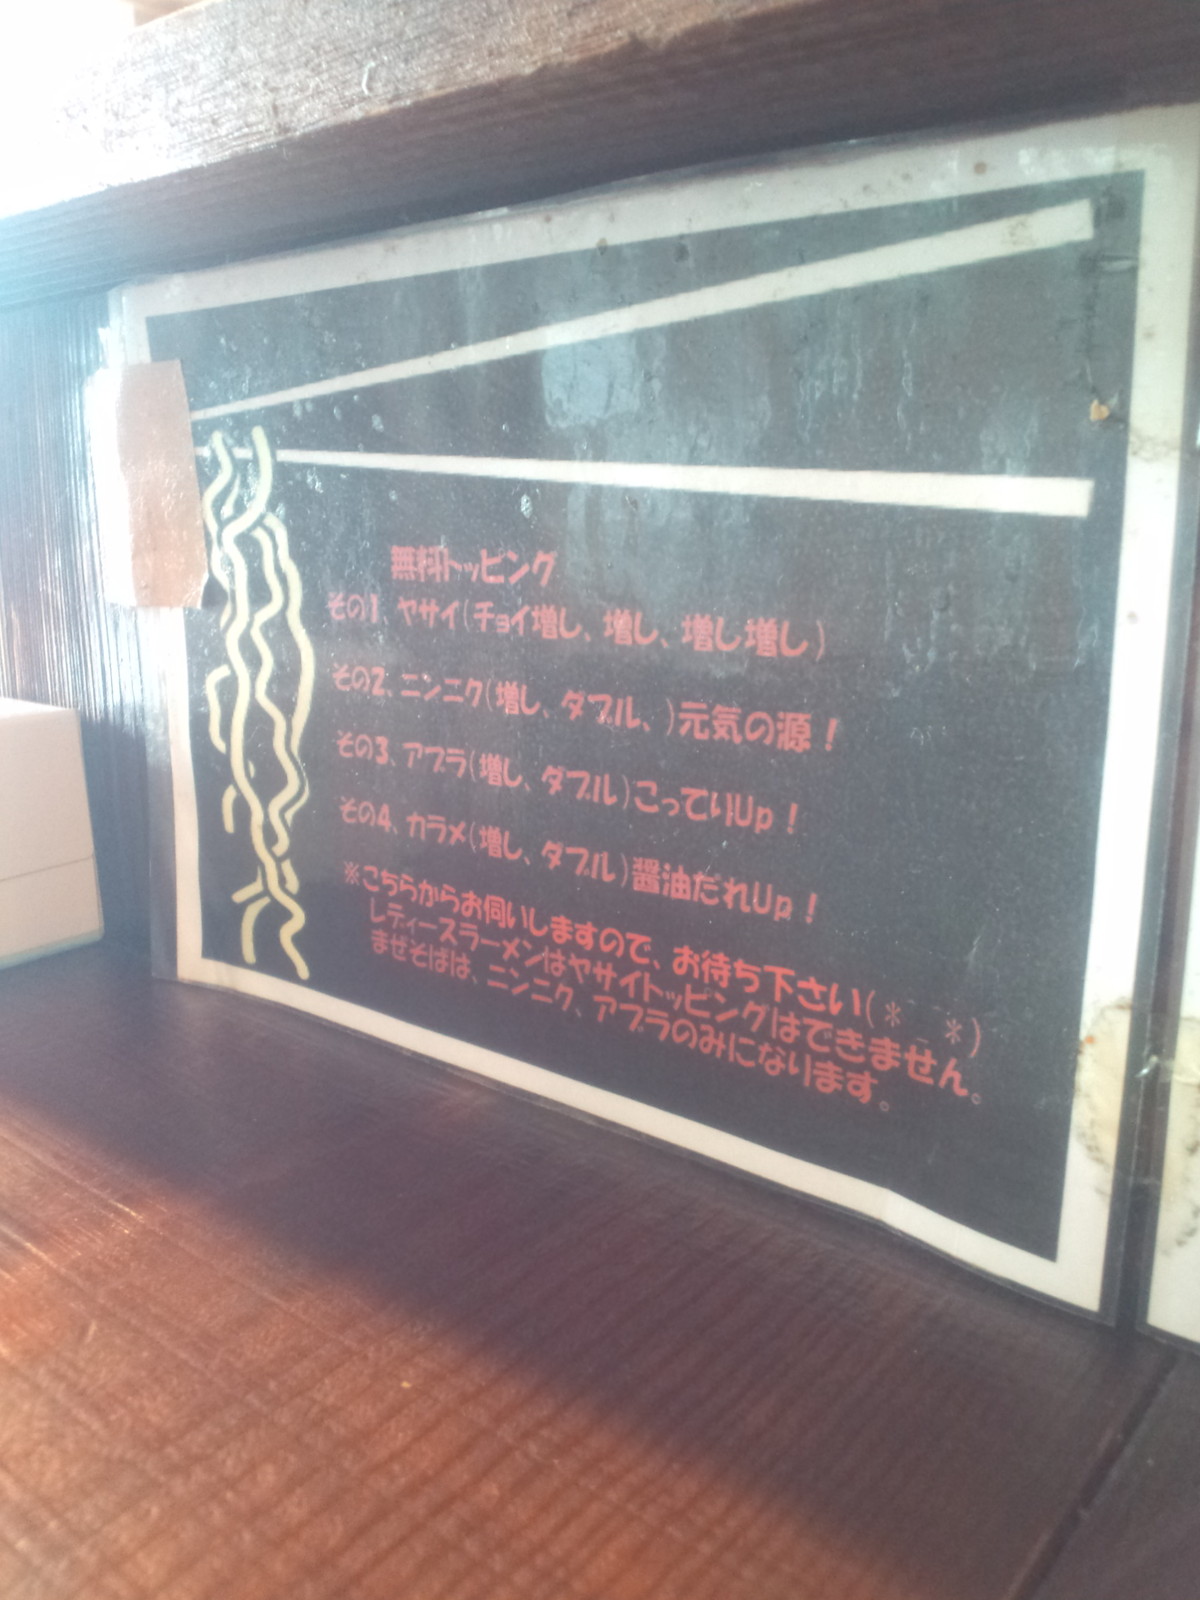 無料トッピング
その1、ヤサイ(チョイ増し、増し、増し増し)
その2、ニンニク(増し、ダブル、)元気の源！
その3、アブラ(増し、ダブル)こってりUp！
その4、カラメ(増し、ダブル)醤油だれUp！
※こちらからお伺いしますので、お待ち下さい(＊_＊)
レディースラーメンはヤサイトッピングはできません。
まぜそばは、ニンニク、アブラのみになります。